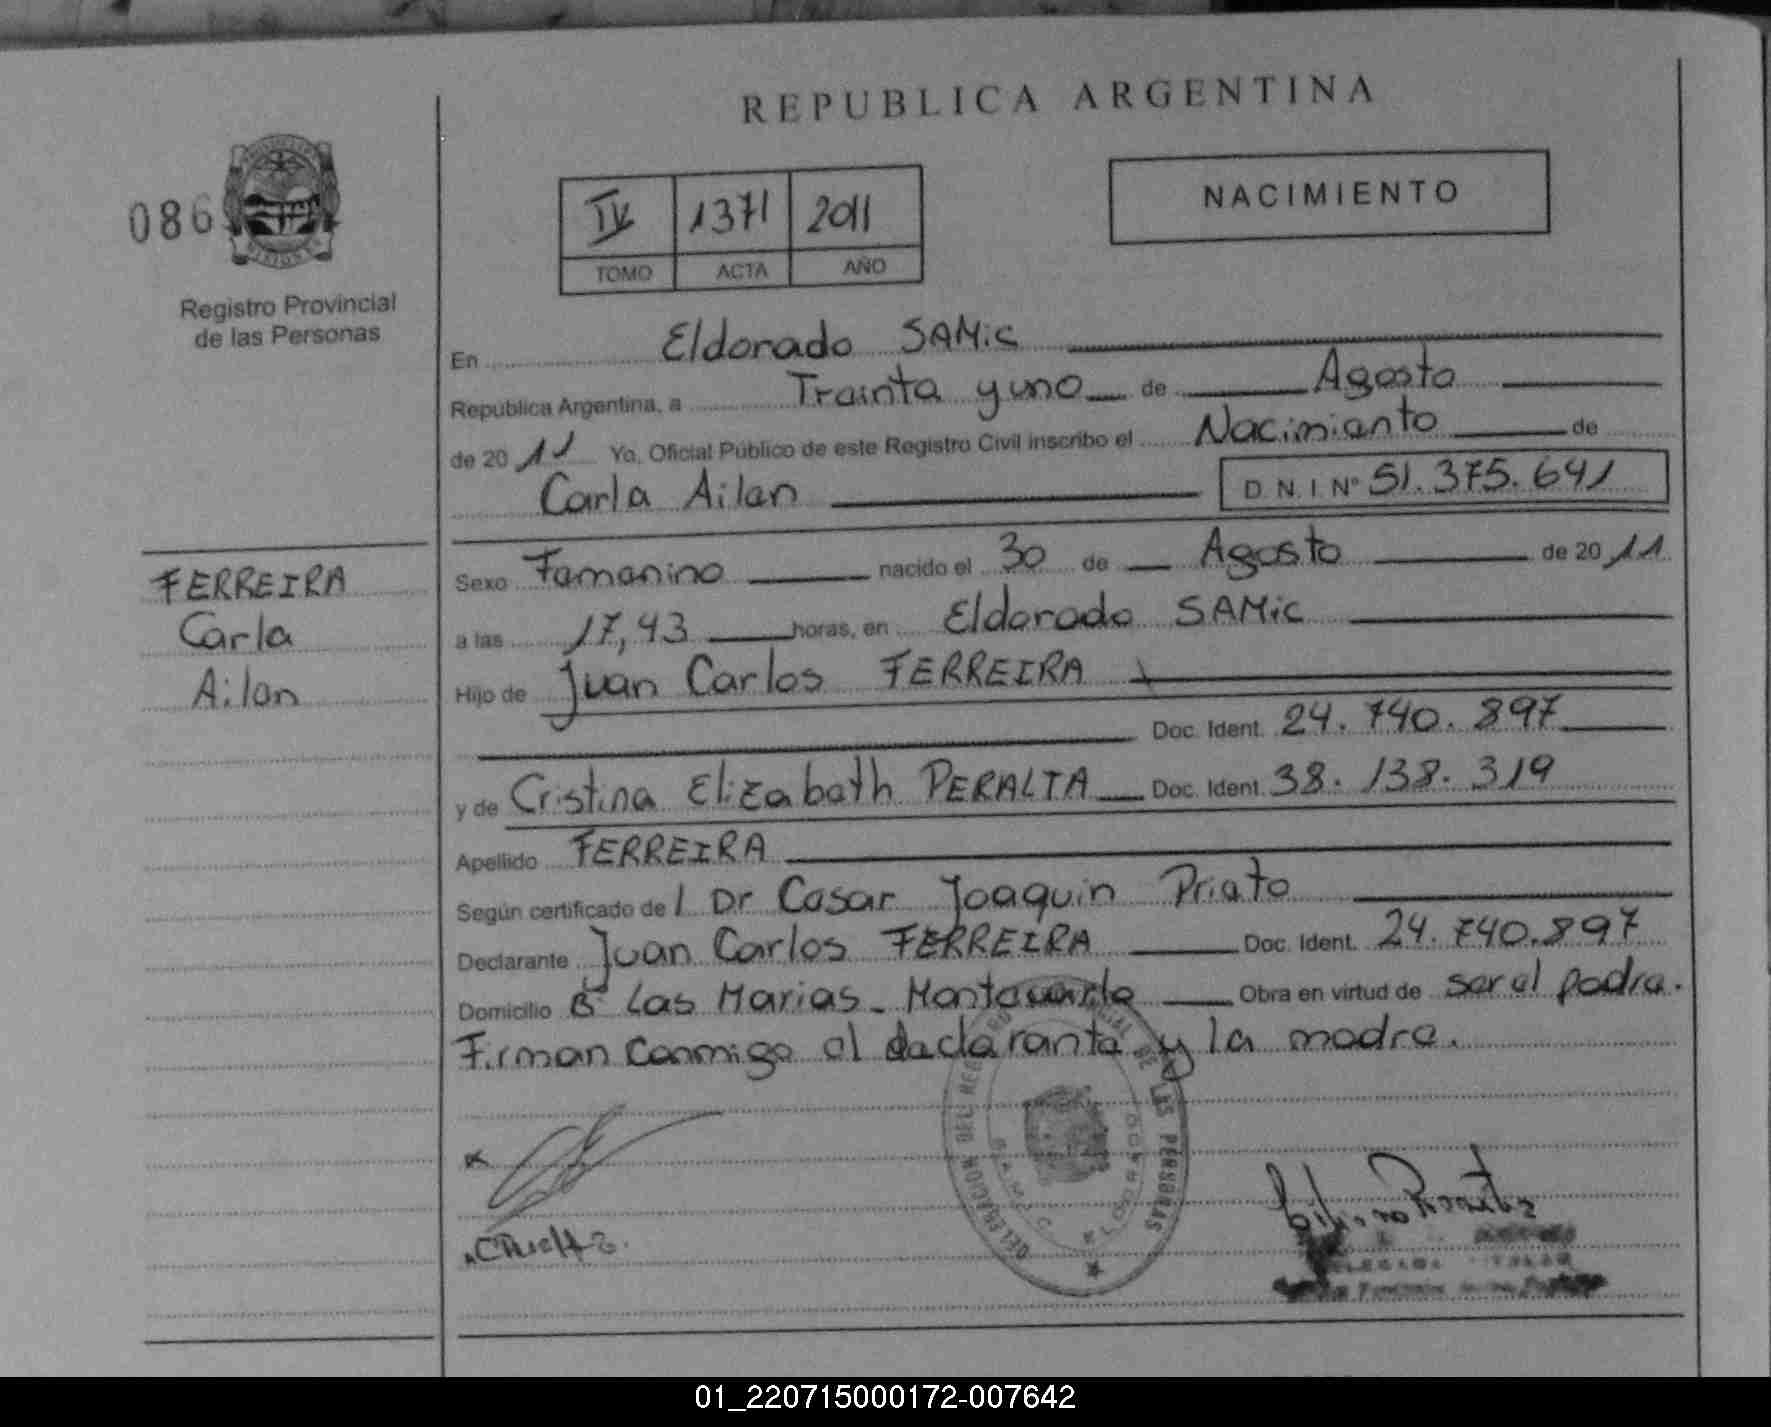 REPUBLICA ARGENTINA
NACIMIENTO
086
IV 1371 2011
TOMO ACTA AÑO
Registro Provincial
de las Personas
En Eldorado SAMic
República Argentina, a Treinta y uno de Agosto
de 2011 Yo, Oficial Público de este Registro Civil inscribo el Nacimiento de
Carla Ailen D. N. I. Nº 51.375.641
FERREIRA
Carla
Ailen
Sexo Femenino nacido el 30 de Agosto de 2011
a las 17,43 horas, en Eldorado SAMic
Hijo de Juan Carlos FERREIRA
Doc. Ident. 24.740.897
y de Cristina Elizabeth PERALTA Doc. Ident. 38.138.319
Apellido FERREIRA
Según certificado del Dr Cesar Joaquin Prieto
Declarante Juan Carlos FERREIRA Doc. Ident. 24.740.897
Domicilio Bº Las Marias - Montecarlo Obra en virtud de ser el padre.
Firman conmigo el declarante y la madre.
DELEGACION DEL REGISTRO PROVINCIAL DE LAS PERSONAS
ELDORADO
01_220715000172-007642